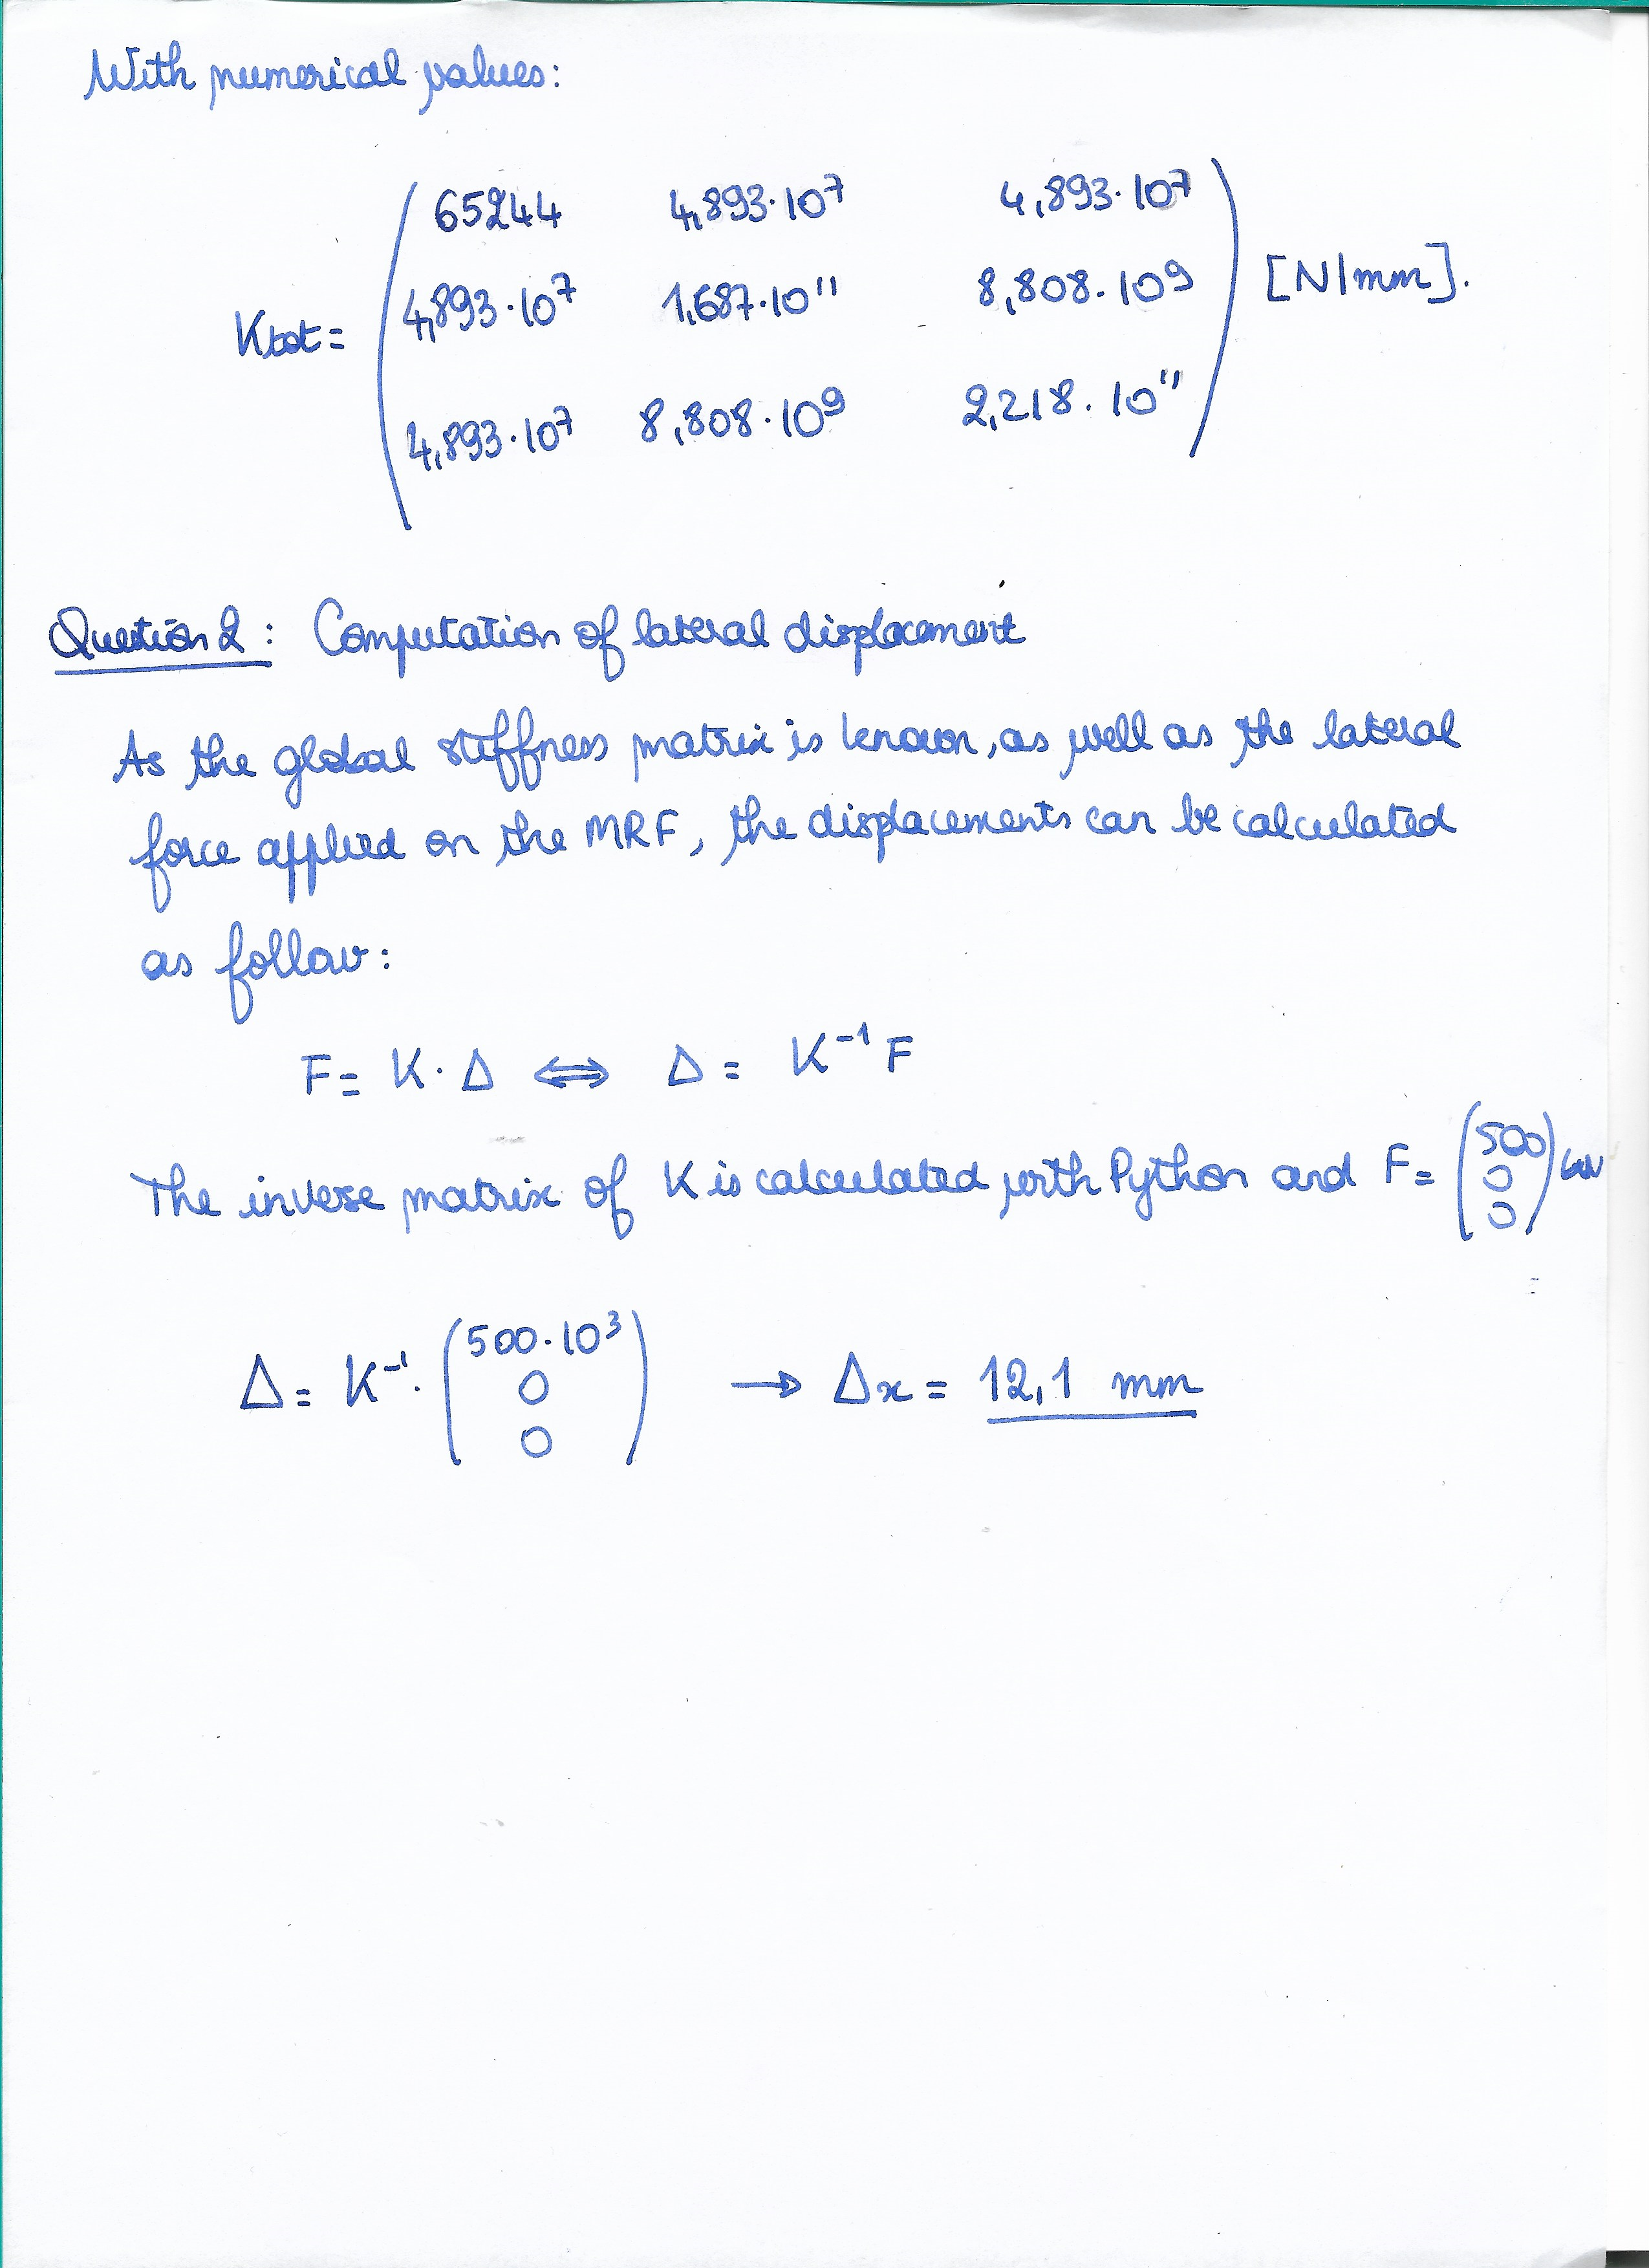 With numerical values:
65244 4,893·10⁷ 4,893·10⁷
Ktot = 4,893·10⁷ 1,687·10¹¹ 8,808·10⁹ [N/mm].
4,893·10⁷ 8,808·10⁹ 2,218·10¹¹
Question 2 : Computation of lateral displacement
As the global stiffness matrix is known, as well as the lateral
force applied on the MRF, the displacements can be calculated
as follow:
F = K · Δ ⟺ Δ = K⁻¹ F
The inverse matrix of K is calculated with Python and F = (500 0 0) kN
Δ = K⁻¹ · (500·10³ 0 0) → Δx = 12,1 mm